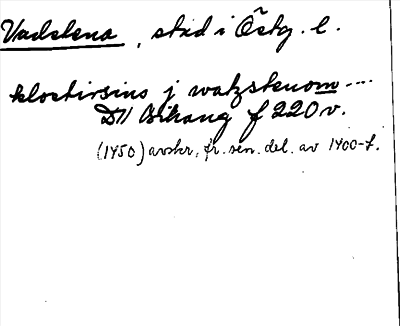 Vadstena, stad i Östg. l.
klostirsins j watzstenom ---
D11 Bihang f 220 v.
(1450) avskr. fr. sen. del. av 1400-t.